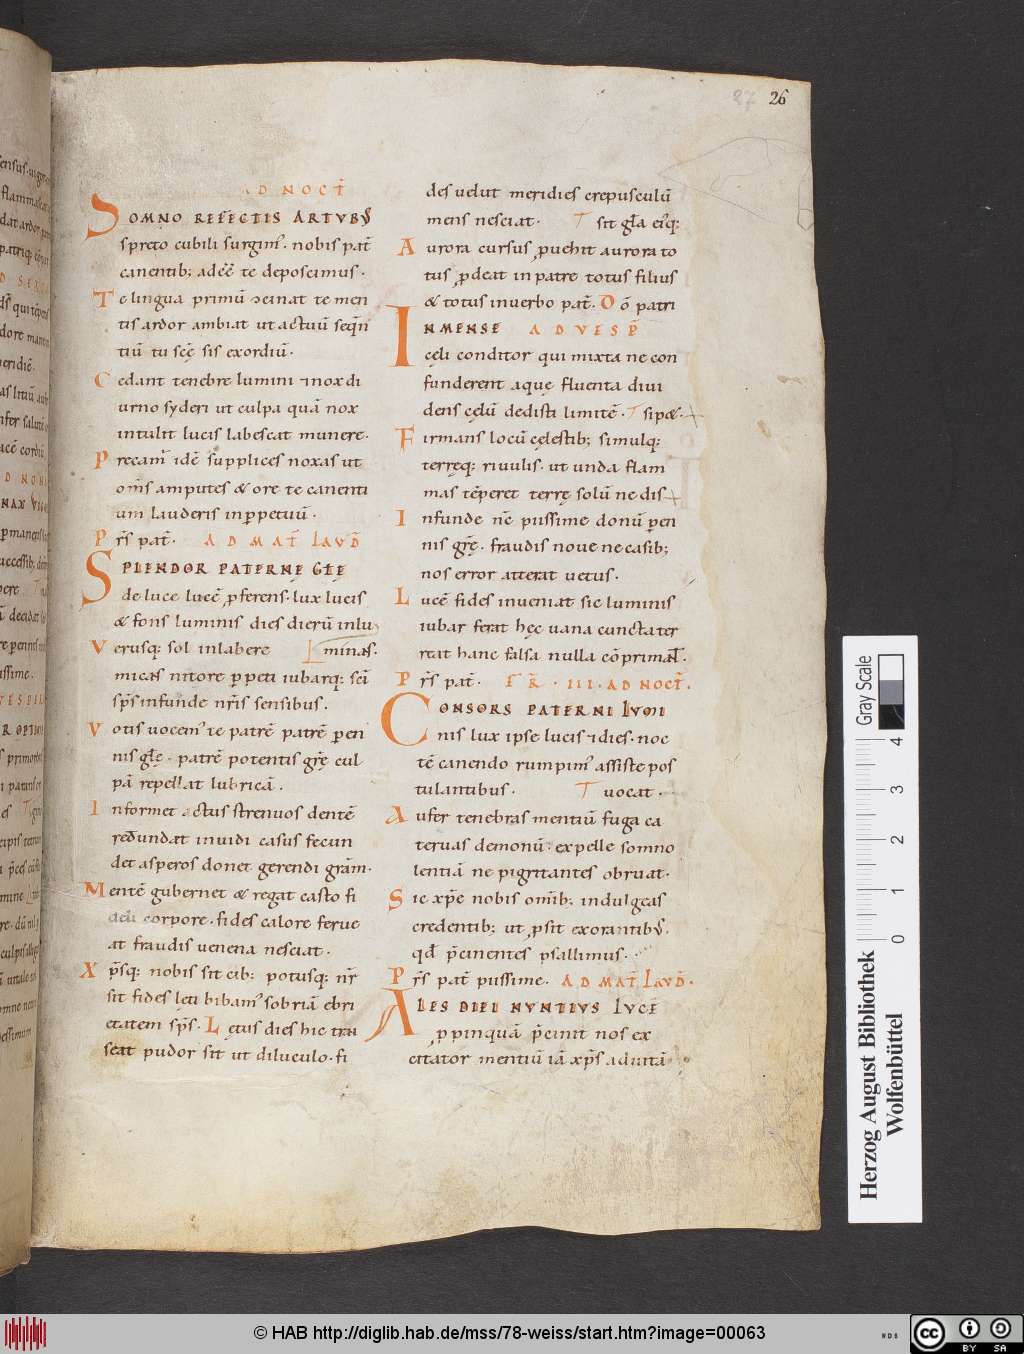 27 26
AD NOCT̄
SOMNO REFECTIS ARTVBꝰ
spreto cubili surgimꝰ. nobis pat̄
canentib; adeē te deposcimus.
Te lingua primū concinat te men
tis ardor ambiat ut actuū seqn̄
tiū tu scē sis exordiū.
Cedant tenebre lumini ⁊ nox di
urno syderi ut culpa quā nox
intulit lucis labescat munere.
Precamꝰ idē supplices noxas ut
om̄s amputes & ore te canenti
um lauderis in ꝑpetuū.
Pr̄s pat̄. AD MAT̄ LAVD̄
SPLENDOR PATERNĘ GLĘ̄
de luce lucē ꝓferens. lux lucis
& fons luminis dies dierū inlu
Verusq: sol inlabere minas.
micas nitore ꝑpeti iubarq: sci
sp̄s infunde nr̄is sensibus.
Votis uocemꝰ te patrē patrē ꝑen
nis glę̄. patrē potentis grę̄ cul
pā repellat lubricā.
Informet actus strenuos dentē
red̄undat inuidi casus fecun
det asperos donet gerendi grām.
Mentē gubernet & regat casto fi
deli corpore. fides calore ferue
at fraudis uenena nesciat.
Xp̄sq: nobis sit cib: potusq: nr̄
sit fides lęti bibamꝰ sobriā ebri
etatem sp̄s. Lętus dies hic tran
seat pudor sit ut diluculo. fi
des uelut meridies crepusculū
mens nesciat. T sit gl̄a eiꝰq:
Aurora cursus ꝓuehit aurora to
tus ꝓdeat in patre totus filius
& totus in uerbo pat̄. Dō patri
INMENSE AD VESP̄
cęli conditor qui mixta ne con
funderent aquę fluenta diui
dens cęlū dedisti limitē. T sipæ.
Firmans locū cęlestib; simulq:
terręq: riuulis. ut unda flam
mas tēperet terrę solū ne dis
Infunde nc̄ piissime donū ꝑen
nis grę̄. fraudis noue ne casib;
nos error atterat uetus.
Lucē fides inueniat sic luminis
iubar ferat hęc uana cuncta ter
reat hanc falsa nulla cōprimat̄.
Pr̄s pat̄. FR̄. III. AD NOCT̄.
CONSORS PATERNI LVMI
nis lux ipse lucis ⁊ dies. noc
tē canendo rumpimꝰ assiste pos
tulantibus. T uocat.
Aufer tenebras mentiū fuga ca
teruas demonū. expelle somno
lentiā ne pigritantes obruat.
Sic xp̄e nobis om̄ib; indulgeas
credentib; ut ꝓsit exorantibꝰ.
qd̄ p̄cinentes psallimus.
Pr̄s pat̄ piissime. AD MAT̄ LAVD̄.
ALES DIEI NVNTIVS LVCĒ
ꝓpinquā p̄cinit nos ex
citator mentiū iā xp̄s ad uitā
Herzog August Bibliothek
Wolfenbüttel
Gray Scale
0 1 2 3 4
© HAB http://diglib.hab.de/mss/78-weiss/start.htm?image=00063
cc BY SA